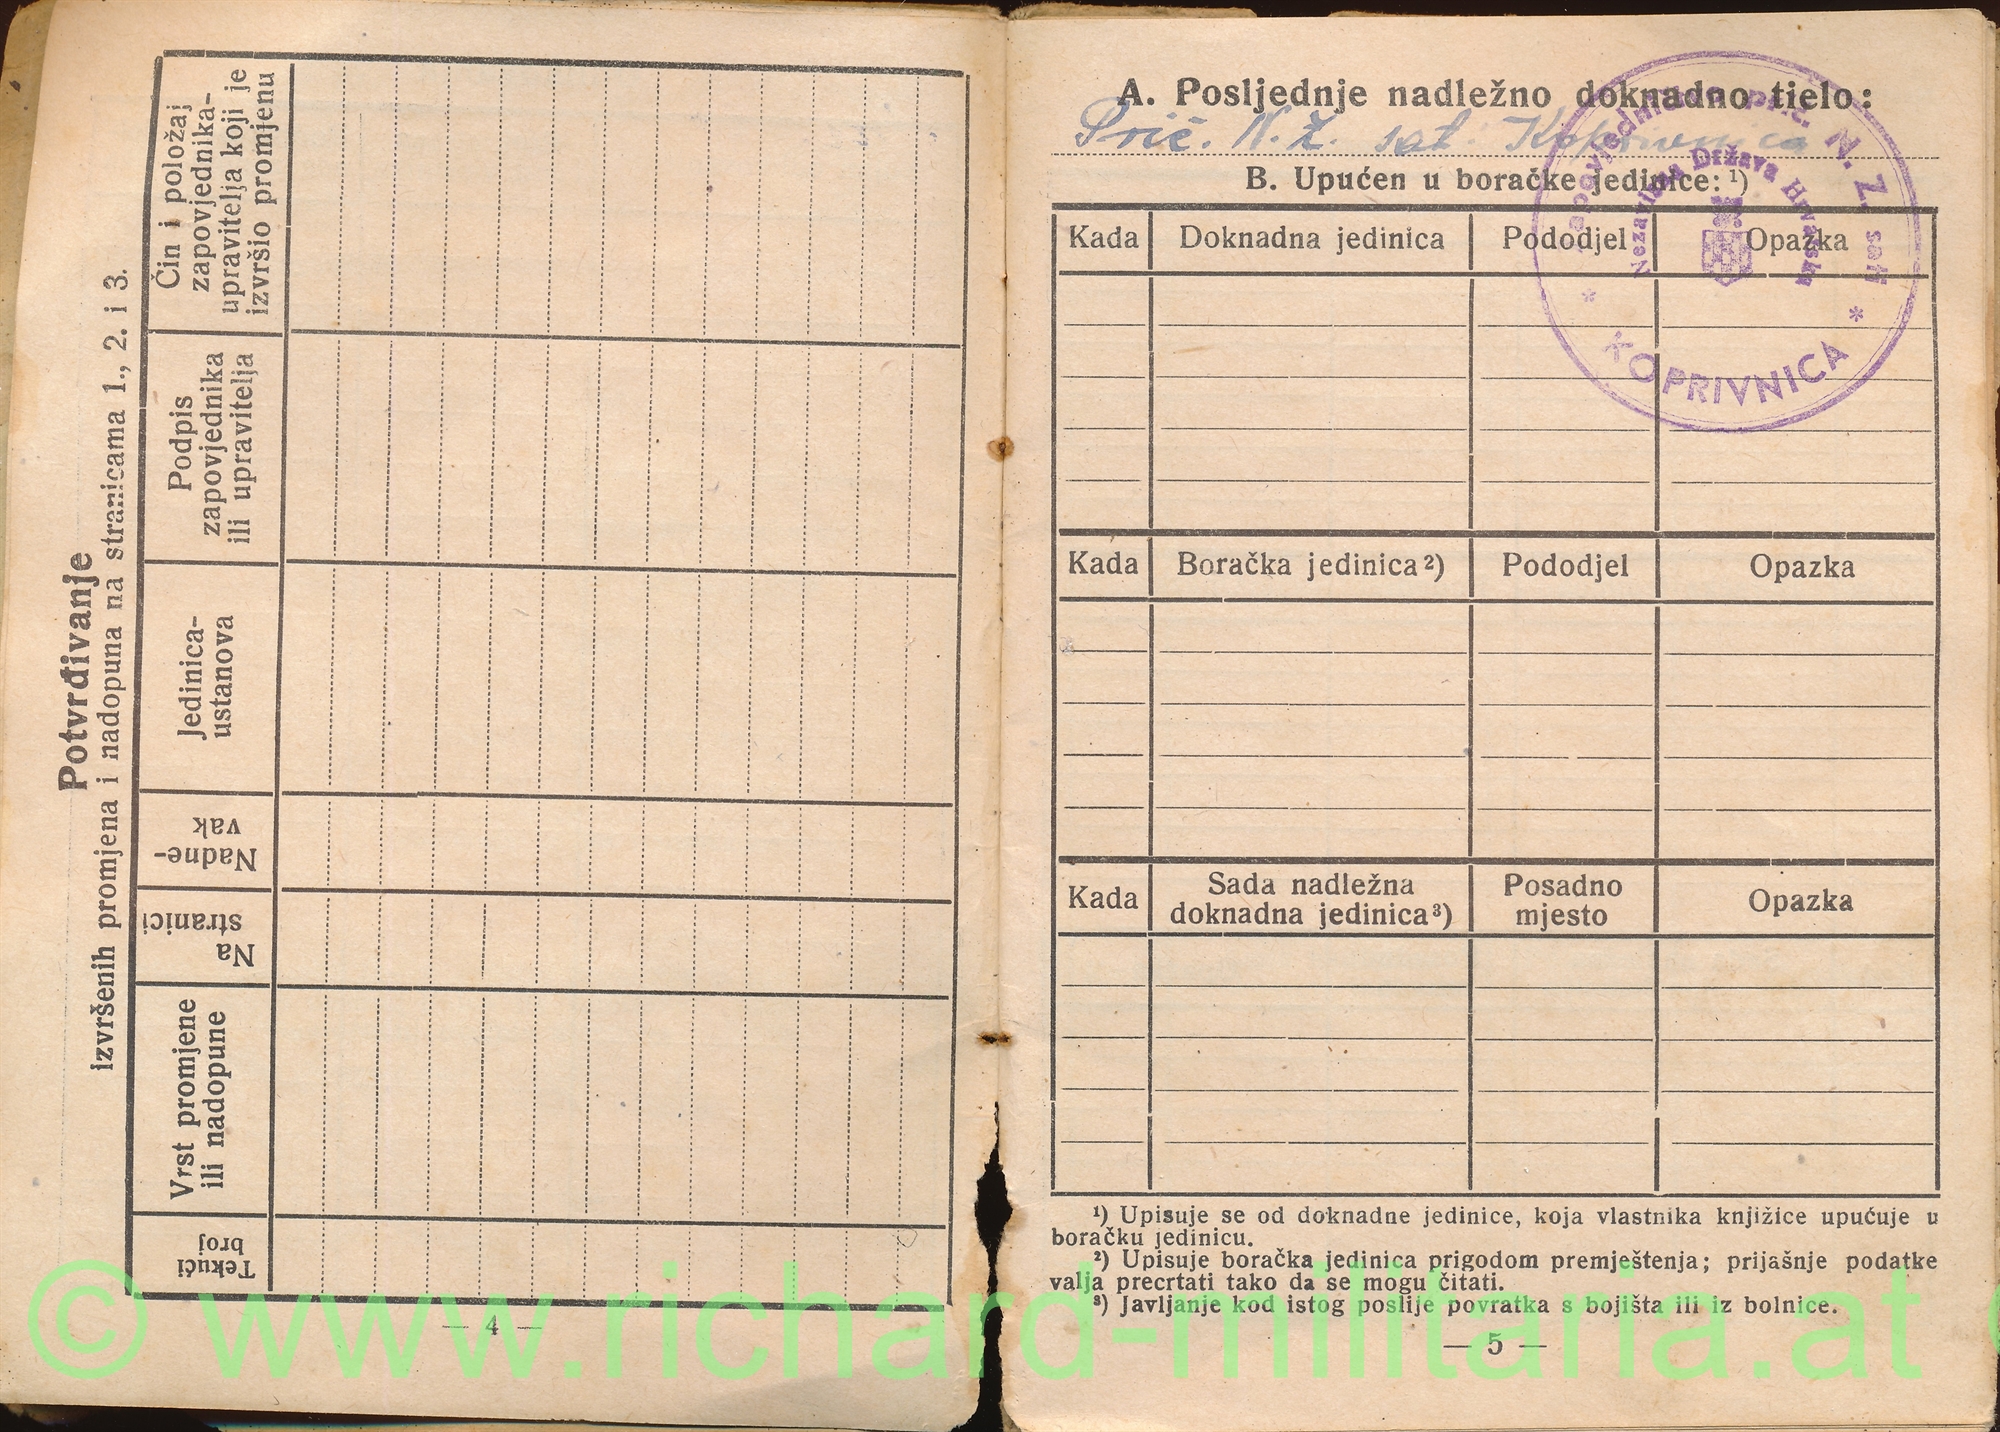 Potvrđivanje
izvršenih promjena i nadopuna na stranicama 1., 2. i 3.
Tekući
broj
Vrst promjene
ili nadopune
Na
stranici
Nadne-
vak
Jedinica-
ustanova
Podpis
zapovjednika
ili upravitelja
Čin i položaj
zapovjednika-
upravitelja koji je
izvršio promjenu
— 4 —
A. Posljednje nadležno doknadno tielo:
Prič. N. Ž. sat. Koprivnica
B. Upućen u boračke jedinice: ¹)
Kada Doknadna jedinica Pododjel Opazka
Kada Boračka jedinica ²) Pododjel Opazka
Kada Sada nadležna doknadna jedinica ³) Posadno mjesto Opazka
¹) Upisuje se od doknadne jedinice, koja vlastnika knjižice upućuje u
boračku jedinicu.
²) Upisuje boračka jedinica prigodom premještenja; prijašnje podatke
valja precrtati tako da se mogu čitati.
³) Javljanje kod istog poslije povratka s bojišta ili iz bolnice.
— 5 —
Zapovjedničtvo prič. N. Ž. sati
Nezavisna Država Hrvatska
* KOPRIVNICA *
© www.richard-militaria.at ©